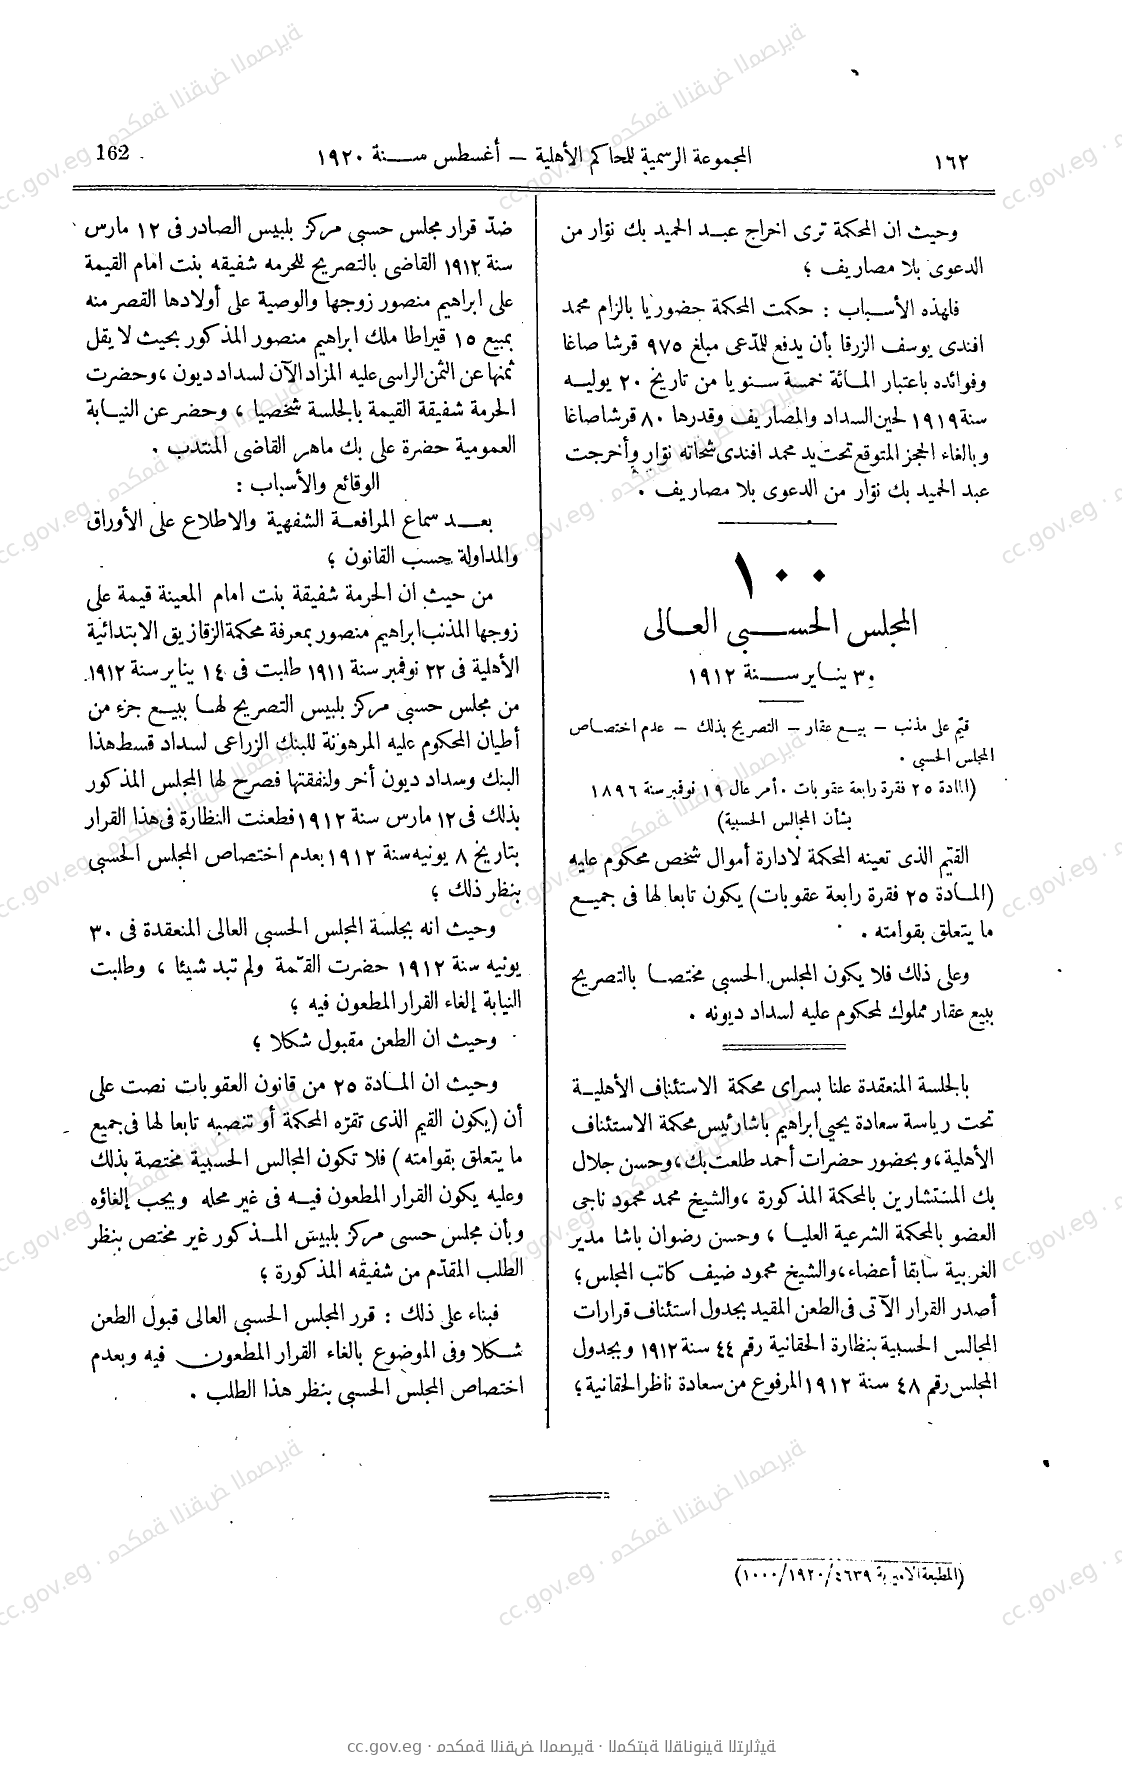 ١٦٢
المجموعة الرسمية للمحاكم الأهلية – أغسطس سنة ١٩٢٠
162
وحيث ان المحكمة ترى اخراج عبد الحميد بك نوّار من
الدعوى بلا مصاريف ؛
فلهذه الأسباب : حكمت المحكمة حضوريا بالزام محمد
افندى يوسف الزرقا بأن يدفع للمدّعى مبلغ ٩٧٥ قرشا صاغا
وفوائده باعتبار المائة خمسة سنويا من تاريخ ٢٠ يوليه
سنة ١٩١٩ لحين السداد والمصاريف وقدرها ٨٠ قرشا صاغا
وبالغاء الحجز المتوقع تحت يد محمد افندى شحاته نوّار وأخرجت
عبد الحميد بك نوّار من الدعوى بلا مصاريف .
١٠٠
المجلس الحسبى العالى
٣٠ يناير سنة ١٩١٢
قيّم على مذنب – بيع عقار – التصريح بذلك – عدم اختصاص
المجلس الحسبى .
(المادة ٢٥ فقرة رابعة عقوبات . أمر عال ١٩ نوفمبر سنة ١٨٩٦
بشأن المجالس الحسبية)
القيّم الذى تعينه المحكمة لادارة أموال شخص محكوم عليه
(المادة ٢٥ فقرة رابعة عقوبات) يكون تابعا لها فى جميع
ما يتعلق بقوامته .
وعلى ذلك فلا يكون المجلس الحسبى مختصا بالتصريح
ببيع عقار مملوك لمحكوم عليه لسداد ديونه .
بالجلسة المنعقدة علنا بسراى محكمة الاستئناف الأهلية
تحت رياسة سعادة يحيى ابراهيم باشا رئيس محكمة الاستئناف
الأهلية ، وبحضور حضرات أحمد طلعت بك ، وحسن جلال
بك المستشارين بالمحكمة المذكورة ، والشيخ محمد محمود ناجى
العضو بالمحكمة الشرعية العليا ، وحسن رضوان باشا مدير
الغربية سابقا أعضاء ، والشيخ محمود ضيف كاتب المجلس ؛
أصدر القرار الآتى فى الطعن المقيد بجدول استئناف قرارات
المجالس الحسبية بنظارة الحقانية رقم ٤٤ سنة ١٩١٢ وبجدول
المجلس رقم ٤٨ سنة ١٩١٢ المرفوع من سعادة ناظر الحقانية ؛
ضدّ قرار مجلس حسبى مركز بلبيس الصادر فى ١٢ مارس
سنة ١٩١٢ القاضى بالتصريح للحرمه شفيقه بنت امام القيمة
على ابراهيم منصور زوجها والوصية على أولادها القصر منه
بمبيع ١٥ قيراطا ملك ابراهيم منصور المذكور بحيث لا يقل
ثمنها عن الثمن الراسى عليه المزاد الآن لسداد ديون ، وحضرت
الحرمة شفيقة القيمة بالجلسة شخصيا ، وحضر عن النيابة
العمومية حضرة على بك ماهر القاضى المنتدب .
الوقائع والأسباب :
بعد سماع المرافعة الشفهية والاطلاع على الأوراق
والمداولة حسب القانون ؛
من حيث ان الحرمة شفيقة بنت امام المعينة قيمة على
زوجها المذنب ابراهيم منصور بمعرفة محكمة الزقازيق الابتدائية
الأهلية فى ٢٢ نوفمبر سنة ١٩١١ طلبت فى ١٤ يناير سنة ١٩١٢
من مجلس حسبى مركز بلبيس التصريح لها ببيع جزء من
أطيان المحكوم عليه المرهونة للبنك الزراعى لسداد قسط هذا
البنك وسداد ديون أخر ولنفقتها فصرح لها المجلس المذكور
بذلك فى ١٢ مارس سنة ١٩١٢ فطعنت النظارة فى هذا القرار
بتاريخ ٨ يونيه سنة ١٩١٢ بعدم اختصاص المجلس الحسبى
بنظر ذلك ؛
وحيث انه بجلسة المجلس الحسبى العالى المنعقدة فى ٣٠
يونيه سنة ١٩١٢ حضرت القيّمة ولم تبد شيئا ، وطلبت
النيابة إلغاء القرار المطعون فيه ؛
وحيث ان الطعن مقبول شكلا ؛
وحيث ان المادة ٢٥ من قانون العقوبات نصت على
أن (يكون القيم الذى تقرّه المحكمة أو تنصبه تابعا لها فى جميع
ما يتعلق بقوامته) فلا تكون المجالس الحسبية مختصة بذلك
وعليه يكون القرار المطعون فيه فى غير محله ويجب إلغاؤه
وبأن مجلس حسبى مركز بلبيس المذكور غير مختص بنظر
الطلب المقدّم من شفيقه المذكورة ؛
فبناء على ذلك : قرر المجلس الحسبى العالى قبول الطعن
شكلا وفى الموضوع بالغاء القرار المطعون فيه وبعدم
اختصاص المجلس الحسبى بنظر هذا الطلب .
(المطبعة الاميرية ٤٦٣٩/١٩٢٠/١٠٠٠)
cc.gov.eg · محكمة النقض المصرية · المكتبة القانونية التراثية